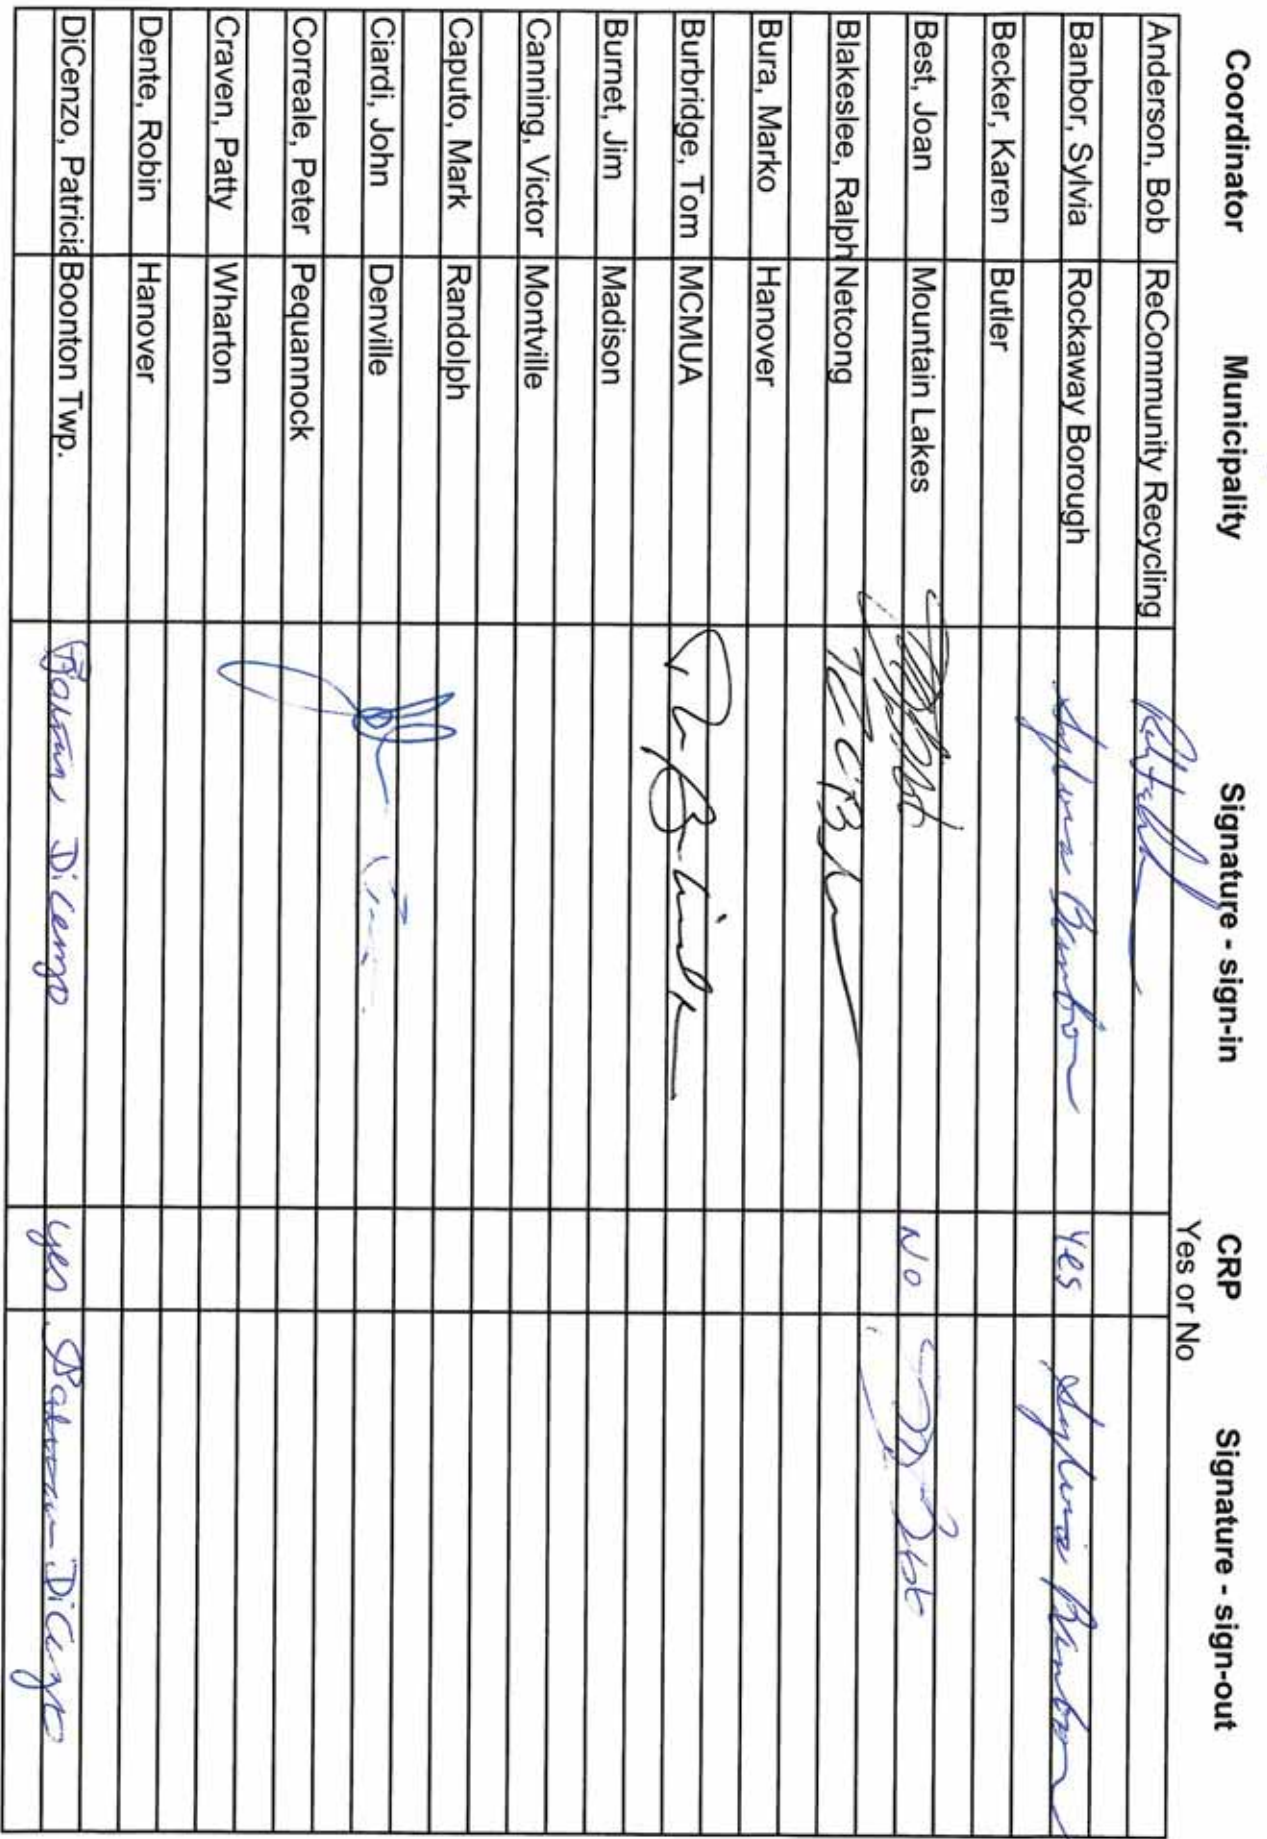 Coordinator Municipality Signature - sign-in CRP Signature - sign-out
Yes or No
Anderson, Bob ReCommunity Recycling
Banbor, Sylvia Rockaway Borough Sylvia Banbor Yes Sylvia Banbor
Becker, Karen Butler
Best, Joan Mountain Lakes No
Blakeslee, Ralph Netcong
Bura, Marko Hanover
Burbridge, Tom MCMUA
Burnet, Jim Madison
Canning, Victor Montville
Caputo, Mark Randolph
Ciardi, John Denville
Correale, Peter Pequannock
Craven, Patty Wharton
Dente, Robin Hanover
DiCenzo, Patricia Boonton Twp. DiCenzo yes DiCenzo